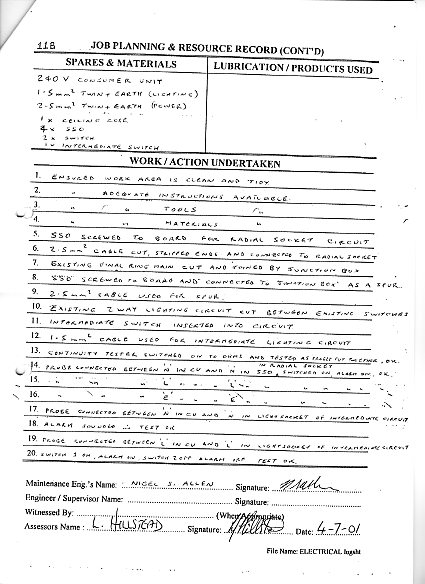 11B JOB PLANNING & RESOURCE RECORD (CONT'D)
SPARES & MATERIALS LUBRICATION / PRODUCTS USED
240V CONSUMER UNIT
1.5mm² TWIN + EARTH (LIGHTING)
2.5mm² TWIN + EARTH (POWER)
1 x CEILING ROSE
4 x SSO
2 x SWITCH
1 x INTERMEDIATE SWITCH
WORK / ACTION UNDERTAKEN
1. ENSURED WORK AREA IS CLEAN AND TIDY
2. " ADEQUATE INSTRUCTIONS AVAILABLE
3. " " TOOLS "
4. " " MATERIALS "
5. SSO SCREWED TO BOARD FOR RADIAL SOCKET CIRCUIT
6. 2.5mm² CABLE CUT, STRIPPED ENDS AND CONNECTED TO RADIAL SOCKET
7. EXISTING FINAL RING MAIN CUT AND JOINED BY JUNCTION BOX
8. SSO SCREWED TO BOARD AND CONNECTED TO JUNCTION BOX AS A SPUR
9. 2.5mm² CABLE USED FOR SPUR
10. EXISTING 2 WAY LIGHTING CIRCUIT CUT BETWEEN EXISTING SWITCHES
11. INTERMEDIATE SWITCH INSERTED INTO CIRCUIT
12. 1.5mm² CABLE USED FOR INTERMEDIATE LIGHTING CIRCUIT
13. CONTINUITY TESTER SWITCHED ON TO OHMS AND TESTED AS PROBES PUT TOGETHER, OK.
14. PROBE CONNECTED BETWEEN N IN CU AND N IN SSO IN RADIAL SOCKET, SWITCHED ON ALARM ON, OK.
15. " " " L " L "
16. " " " E " E "
17. PROBE CONNECTED BETWEEN N IN CU AND N IN LIGHTSOCKET OF INTERMEDIATE CIRCUIT
18. ALARM SOUNDED ∴ TEST OK
19. PROBE CONNECTED BETWEEN L IN CU AND L IN LIGHTSOCKET OF INTERMEDIATE CIRCUIT
20. SWITCH 1 ON, ALARM ON SWITCH 2 OFF ALARM OFF TEST OK
Maintenance Eng.'s Name: NIGEL S. ALLEN Signature:
Engineer / Supervisor Name: Signature:
Witnessed By: (Where Appropriate)
Assessors Name : L. HILSTEAD Signature: Date: 4-7-01
File Name: ELECTRICAL